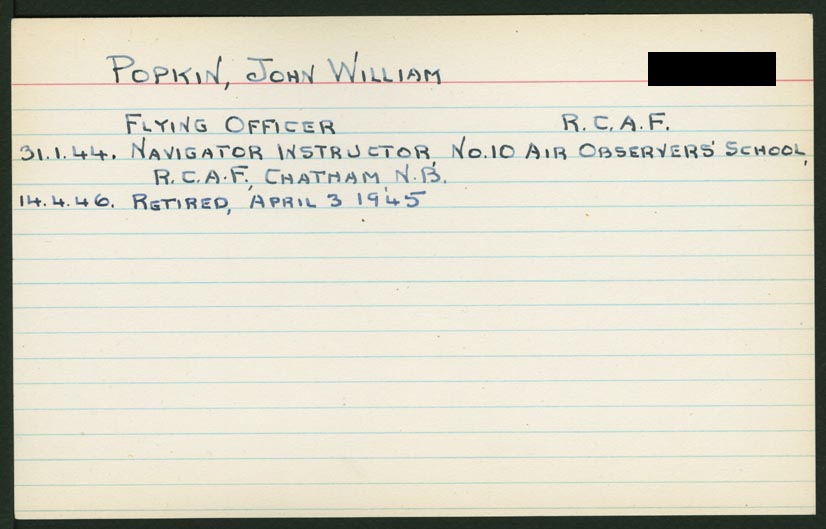 POPKIN, JOHN WILLIAM
FLYING OFFICER R.C.A.F.
31.1.44. NAVIGATOR INSTRUCTOR, No.10 AIR OBSERVERS' SCHOOL,
R.C.A.F., CHATHAM, N.B.
14.4.46. RETIRED, APRIL 3 1945